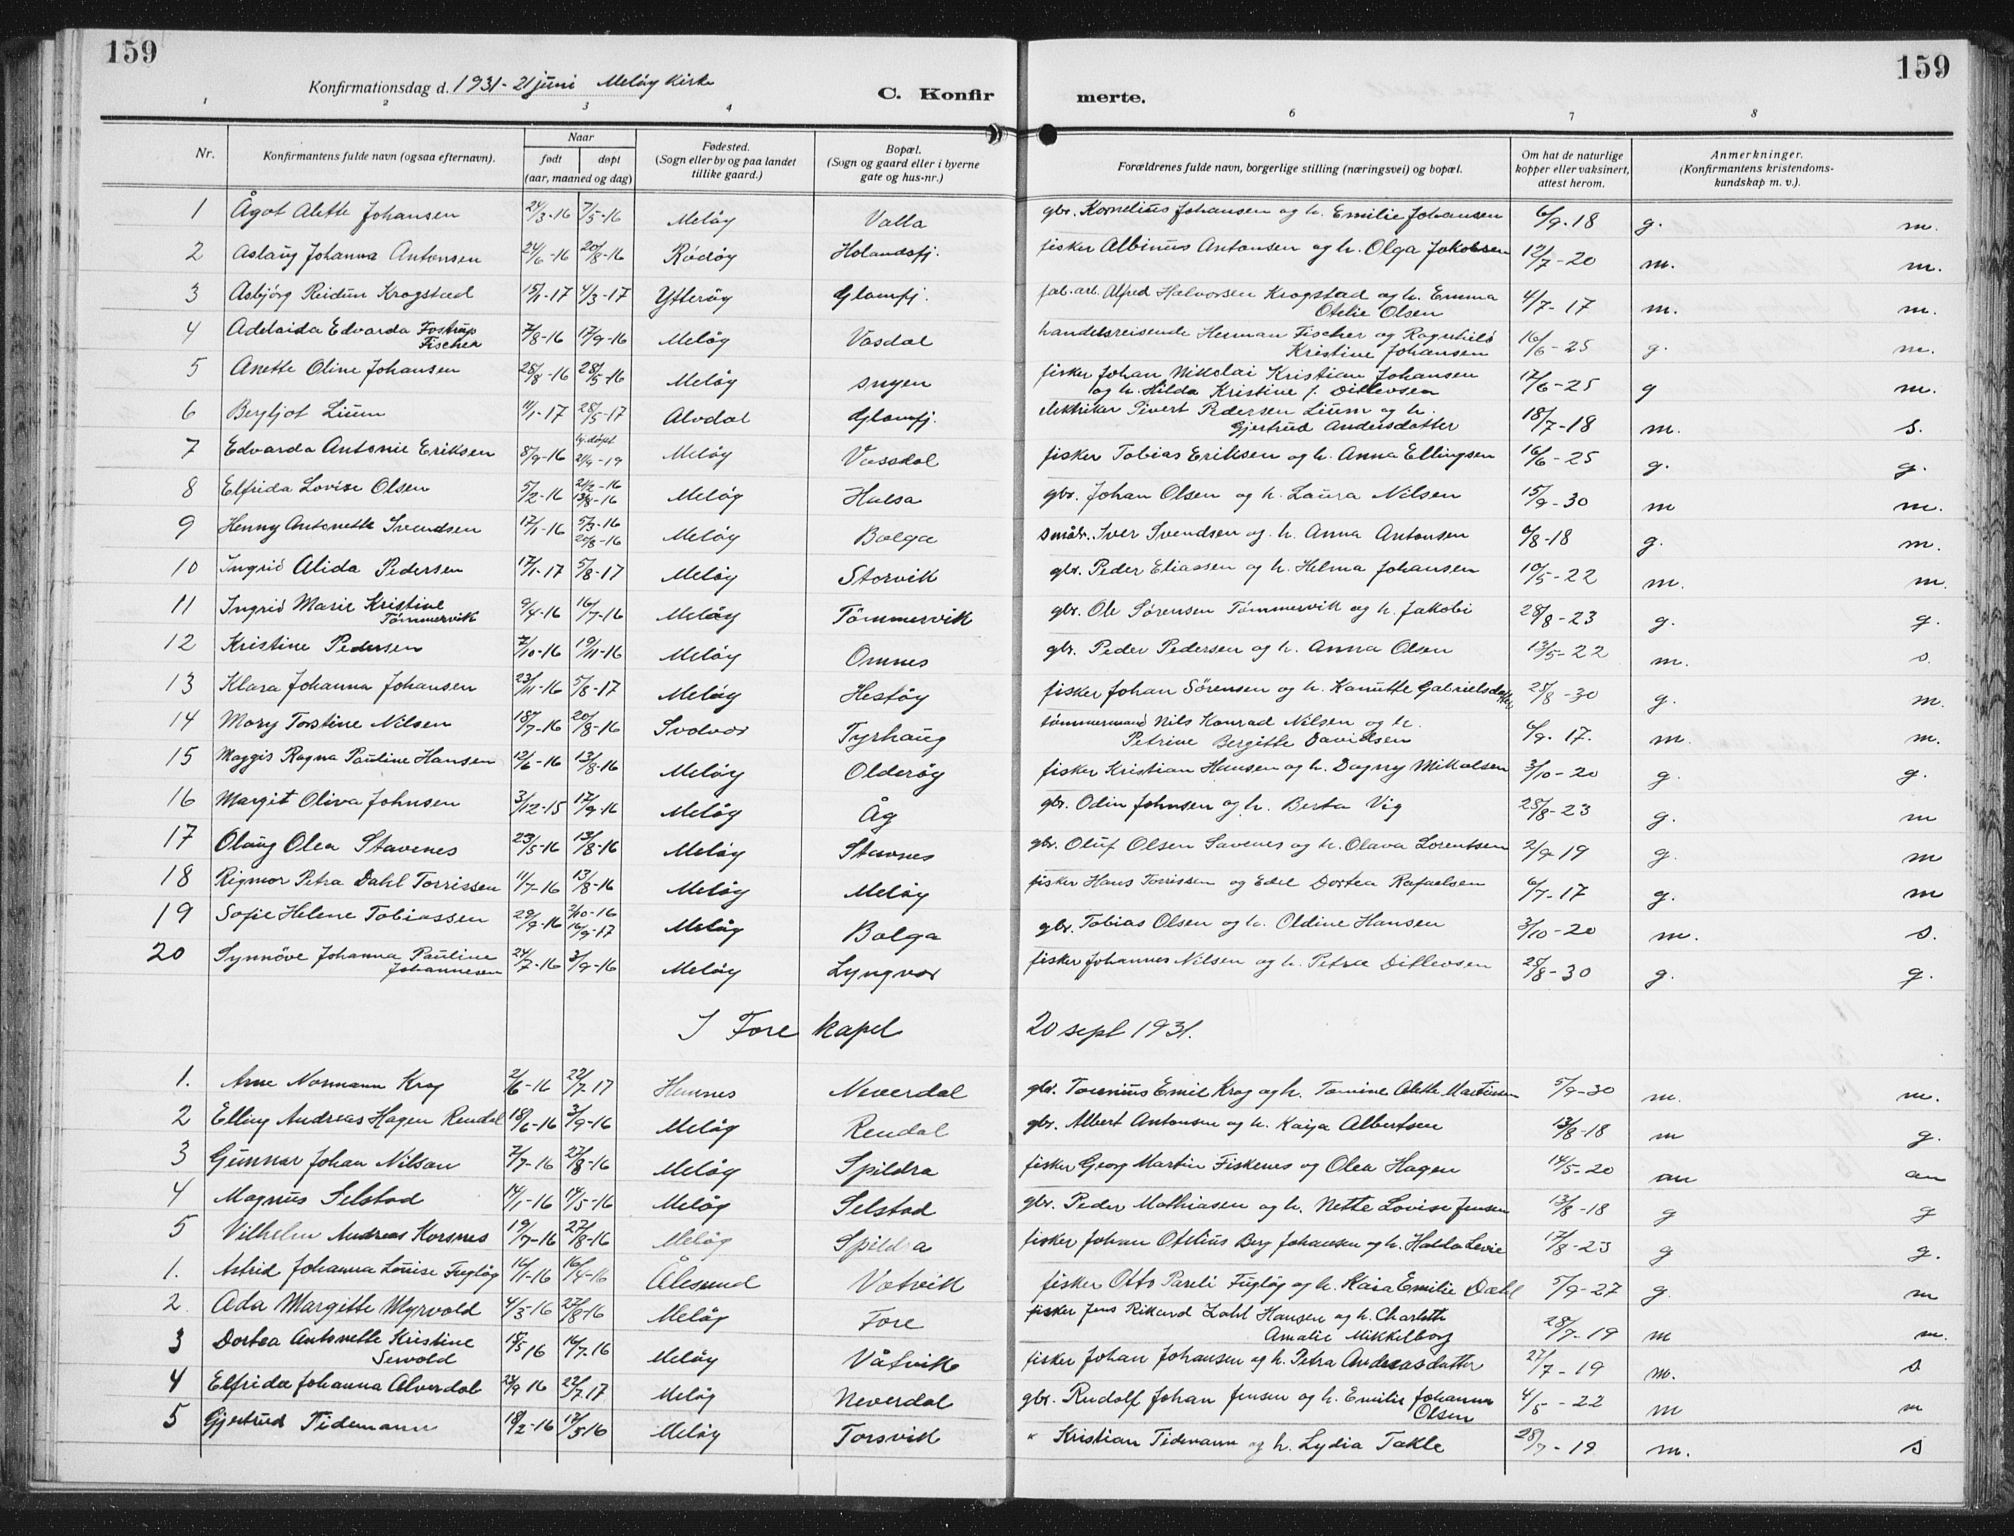 159
159
Konfirmationsdag d. 1931 - 21 juni Meløy kirke
C. Konfir merte.
1 2 3 4 6 7 8
Nr. Konfirmantens fulde navn (ogsaa efternavn). Naar født døpt (aar, maaned og dag) Fødested. (Sogn eller by og paa landet tillike gaard.) Bopæl. (Sogn og gaard eller i byerne gate og hus-nr.) Forældrenes fulde navn, borgerlige stilling (næringsvei) og bopæl. Om hat de naturlige kopper eller vaksinert, attest herom. Anmerkninger. (Konfirmantens kristendoms- kundskap m. v.).
1 Ågot Alette Johansen 24/3-16 7/5-16 Meløy Valla gbr. Kornelius Johansen og h. Emilie Johansen 6/9-18 g. m.
2 Aslaug Johanna Antonsen 24/6-16 20/8-16 Rødøy Holandsfj. fisker Albinus Antonsen og h. Olga Jakobsen 12/7-20 m. m.
3 Asbjörg Reidun Krogstad 15/1-17 4/3-17 Ytterøy Glomfj. fab.arb. Alfred Halvorsen Krogstad og h. Emma Otelie Olsen 4/7-17 m. m.
4 Adelaida Edvarda Fostrup Fischer 7/8-16 17/9-16 Meløy Vasdal handelsreisende Herman Fischer og Ragnhild Kristine Johansen 16/6-25 g. m.
5 Anette Oline Johansen 28/8-16 28/5-16 Meløy Ørnyen fisker Johan Nikolai Kristian Johansen og h. Hilda Kristine f. Ditlevsen 17/6-25 g m.
6 Bergljot Lium 11/1-17 28/5-17 Alvdal Glomfj. elektriker Sivert Pedersen Lium og h. Gjertrud Andersdatter 18/7-18 m. s.
7 Edvarda Antonie Eriksen 8/9-16 hj.døpt 21/4-19 Meløy Vassdal fisker Tobias Eriksen og h. Anna Ellingsen 16/6-25 g. g.
8 Elfrida Lovise Olsen 5/2-16 21/2-16 13/8-16 Meløy Halsa gbr. Johan Olsen og h. Laura Nilsen 15/9-30 m m.
9 Henny Antonette Svendsen 17/1-16 5/3-16 20/8-16 Meløy Bolga småbr. Iver Svendsen og h. Anna Antonsen 6/8-18 g. m.
10 Ingrid Alida Pedersen 17/1-17 5/8-17 Meløy Storvik gbr. Peder Eliassen og h. Helma Johansen 10/5-22 m. m.
11 Ingrid Marie Kristine Tømmervik 9/4-16 16/7-16 Meløy Tömmervik gbr. Ole Sørensen Tømmervik og h. Jakobi 28/8-23 g. g.
12 Kristine Pedersen 7/10-16 19/11-16 Meløy Omnes gbr. Peder Pedersen og h. Anna Olsen 13/5-22 m. s.
13 Klara Johanna Johansen 23/11-16 5/8-17 Meløy Hestøy fisker Johan Sørensen og h. Kanutte Gabrielsdatter 25/8-30 g. m.
14 Mary Torstine Nilsen 18/7-16 20/8-16 Svolvær Tyrhaug tømmermand Nils Konrad Nilsen og h. Petrine Bergitte Davidsen 6/9-17. m. m.
15 Maggis Ragna Pauline Hansen 12/6-16 13/8-16 Meløy Olderøy fisker Kristian Hansen og h. Dagny Mikalsen 3/10-20 g. g.
16 Margit Oliva Johnsen 3/12-15 17/9-16 Meløy Åg gbr. Odin Johnsen og h. Berta Vig 28/8-23 g. m
17 Olaug Olea Stavenes 23/5-16 13/8-16 Meløy Stavnes gbr. Oluf Olsen Savenes og h. Olava Lorentsen 2/9-19 g. m
18 Rigmor Petra Dahl Torrissen 11/7-16 13/8-16 Meløy Meløy fisker Hans Torrissen og Edel Dortea Rafaelsen 6/7-17 g. m
19 Sofie Helene Tobiassen 29/9-16 3/10-16 16/9-17 Meløy Bolga gbr. Tobias Olsen og h. Oldine Hansen 3/10-20 m. s.
20 Synnöve Johanna Pauline Johannesen 24/7-16 3/9-16 Meløy Lyngvær fisker Johannes Nilsen og h. Petra Ditlevsen 25/8-30 g. g.
I Fore kapel 20 sept 1931.
1. Arne Normann Krog 2/6-16 22/7-17 Hemnes Neverdal gbr. Torenius Emil Krog og h. Tomine Alette Martinsen 5/9-30 m. m.
2 Elling Andreas Hagen Rendal 18/6-16 3/9-16 Meløy Rendal gbr. Albert Antonsen og h. Kaija Albertsen 13/8-18 m g.
3 Gunnar Johan Nilsen 7/7-16 27/8-16 Meløy Spildra fisker Georg Martin Fiskenes og Olea Hagen 14/5-20 m m
4 Magnus Selstad 14/1-16 14/5-16 Meløy Selstad gbr. Peder Mathiasen og h. Nette Lovise Jensen 13/8-18 g g
5 Vilhelm Andreas Korsnes 19/7-16 27/8-16 Meløy Spildra fisker Johan Otelius Berg Johansen og h. Halda Levie 17/8-23 g g.
1. Astrid Johanna Louise Fugløy 14/1-16 16/4-16 Ålesund Vatvik fisker Otto Pareli Fugløy og h. Kaia Emilie Dahl 5/9-27 g. m
2. Ada Margitte Myrvold 4/3-16 27/8-16 Meløy Fore fisker Jens Rikard Dahl Hansen og h. Charlotte Amalie Mikkelborg 28/7-19 m m.
3 Dortea Antonette Kristine Sevold 15/5-16 14/7-16 Meløy Våtvik fisker Johan Johansen og h. Petra Andreasdatter 27/7-19 m. s
4 Elfrida Johanna Alverdal 23/9-16 22/7-17 Meløy Neverdal gbr. Rudolf Johan Jensen og h. Emilie Johanna Olsen 4/5-22 m m
5 Gjertrud Tidemann 18/2-16 17/5-16 Meløy Torsvik " Kristian Tidemann og h. Lydia Takle 28/7-19 m. s